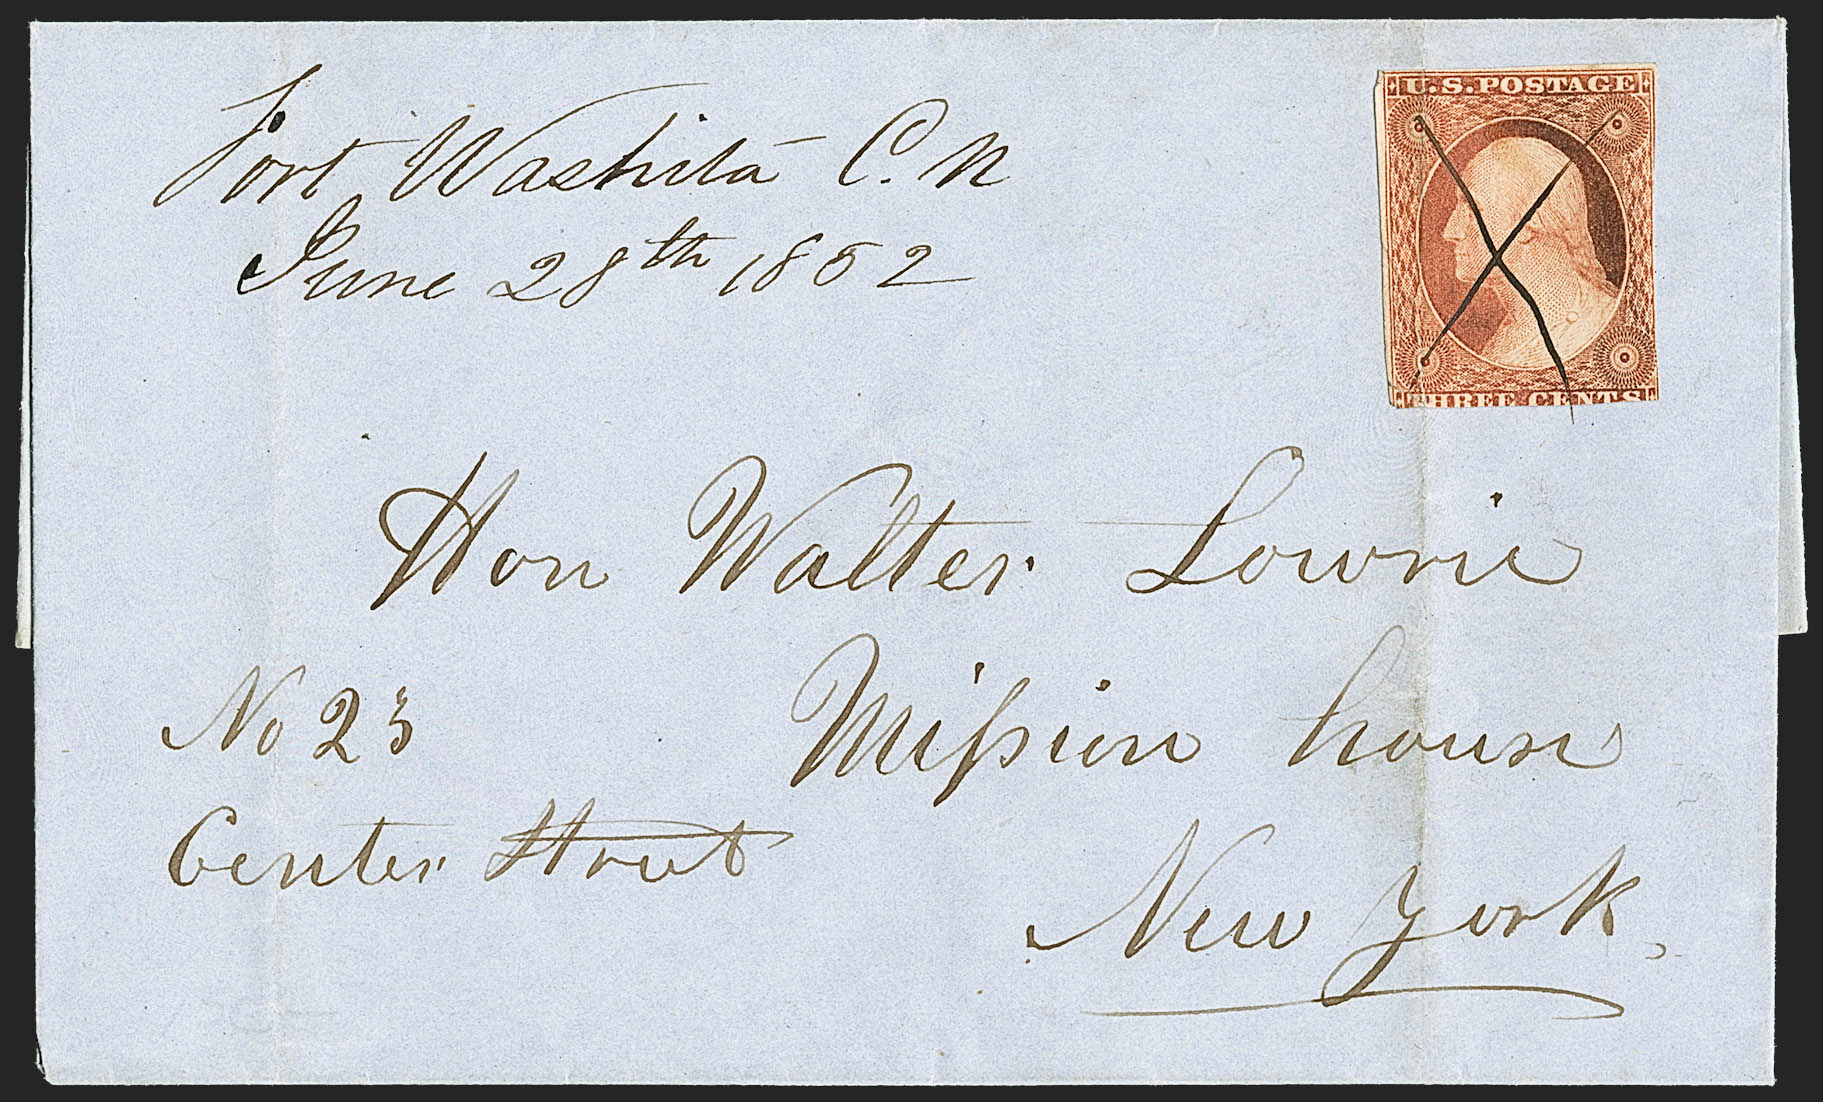 Fort Washita C. N
June 28th 1852
U.S. POSTAGE
THREE CENTS
Hon Walter Lowrie
Mission house
New York
No 23
Center Street